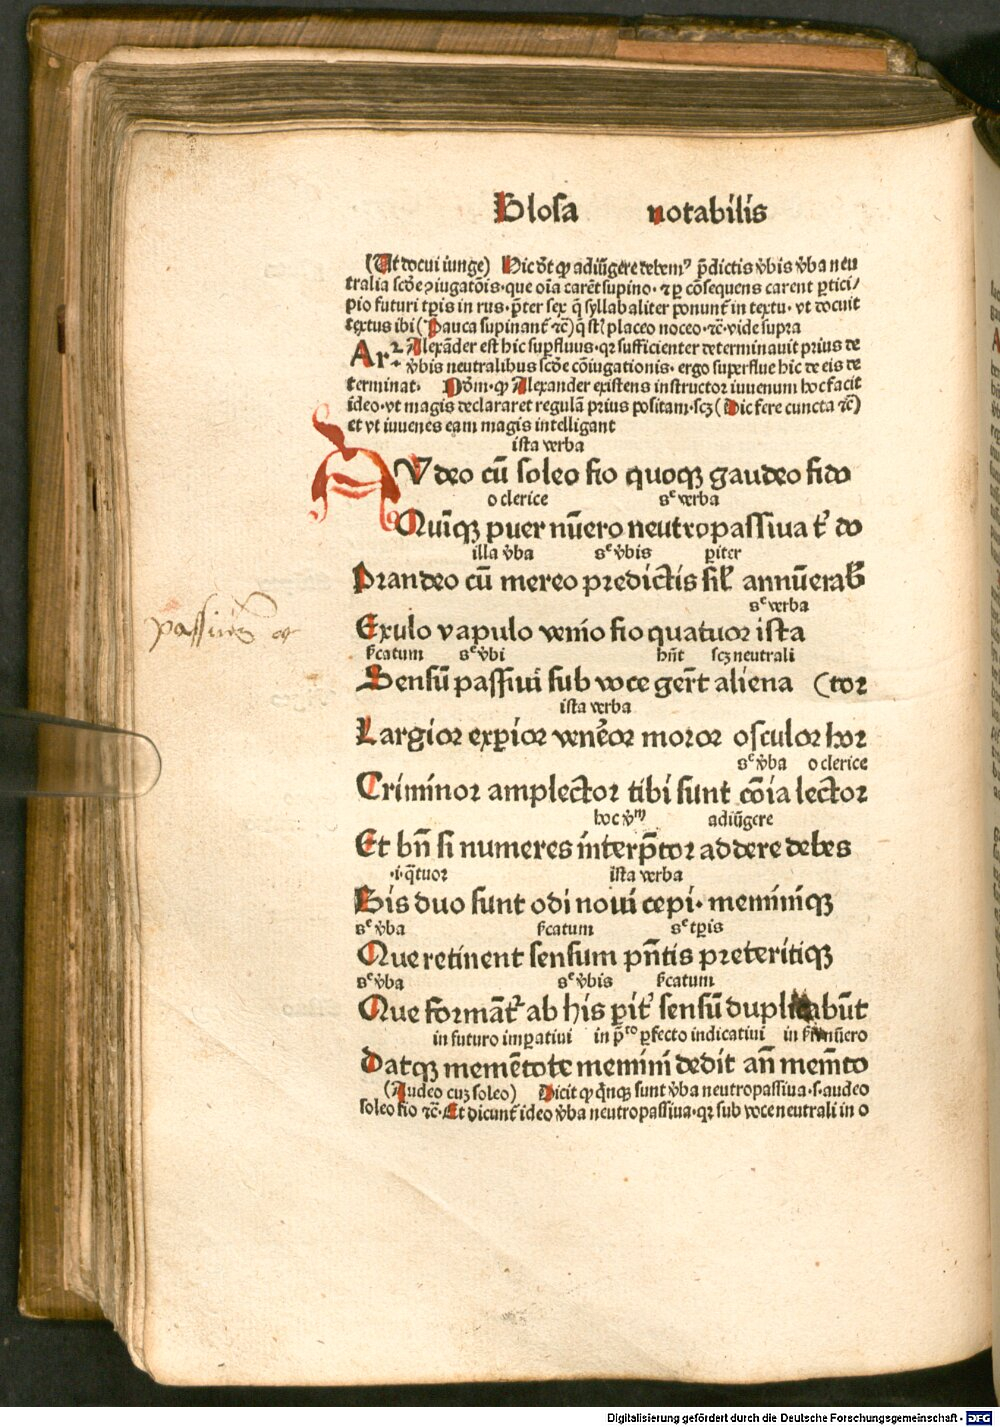 Glosa notabilis
(Ut docui iunge) Hic dt̄ ꝙ adiūgere debemꝰ p̄dictis v̓bis v̓ba neu
tralia scd̄e ꝯiugatōis· que oīa carēt supino· ⁊ ꝑ cōsequens carent ꝑtici/
pio futuri tꝑis in rus· p̄ter sex q̄ syllabaliter ponunt᷑ in textu· vt docuit
textus ibi (Pauca supinant᷑ ⁊c̄) q̄ st̄ placeo noceo· ⁊c̄· vide supra
Ar⁊ Alexāder est hic suꝑfluus· qꝛ sufficienter determinauit prius de
v̓bis neutralibus scd̄e cōiugationis· ergo superflue hic de eis de
terminat· Dōm· ꝙ Alexander existens instructor iuuenum hoc facit
ideo· vt magis declararet regulā prius positam· scꝫ (Hic fere cuncta ⁊c̄)
et vt iuuenes eam magis intelligant
ista verba
AVdeo cū soleo fio quoqꝫ gaudeo fido
o clerice sᵉ verba
Quīqꝫ puer nūero neutropassiua t᷑ do
illa v̓ba sᵉ v̓bis ꝑiter
Prandeo cū mereo predictis sil̄ annūerab̄
sᵉ verba
Exulo vapulo venio fio quatuor ista
passiuū
ſ̓catum sᵉ v̓bi hn̄t scꝫ neutrali
Sensū passiui sub voce gerūt aliena (tor
ista verba
Largior exꝑior venēor moror osculor hor
sᵉ v̓ba o clerice
Criminor amplector tibi sunt cōia lector
hoc v̓ᵐ adiūgere
Et bn̄ si numeres interp̄tor addere debes
·i· q̄tuor ista verba
Bis duo sunt odi noui cepi· meminiqꝫ
sᵉ v̓ba ſ̓catum sᵉ tꝑis
Que retinent sensum pn̄tis preteritiqꝫ
sᵉ v̓ba sᵉ v̓bis ſ̓catum
Que formāt᷑ ab his ꝑit᷑ sensū duplicabūt
in futuro imꝑatiui in p̄ᵗᵒ ꝑfecto indicatiui in nūero
Datqꝫ memētote memini dedit an̄ mem̄to
(Audeo cuꝫ soleo) Dicit ꝙ qn̄qꝫ sunt v̓ba neutropassiua· s· audeo
soleo fio ⁊c̄· Et dicunt᷑ ideo v̓ba neutropassiua· qꝛ sub voce neutrali in o
Digitalisierung gefördert durch die Deutsche Forschungsgemeinschaft - DFG